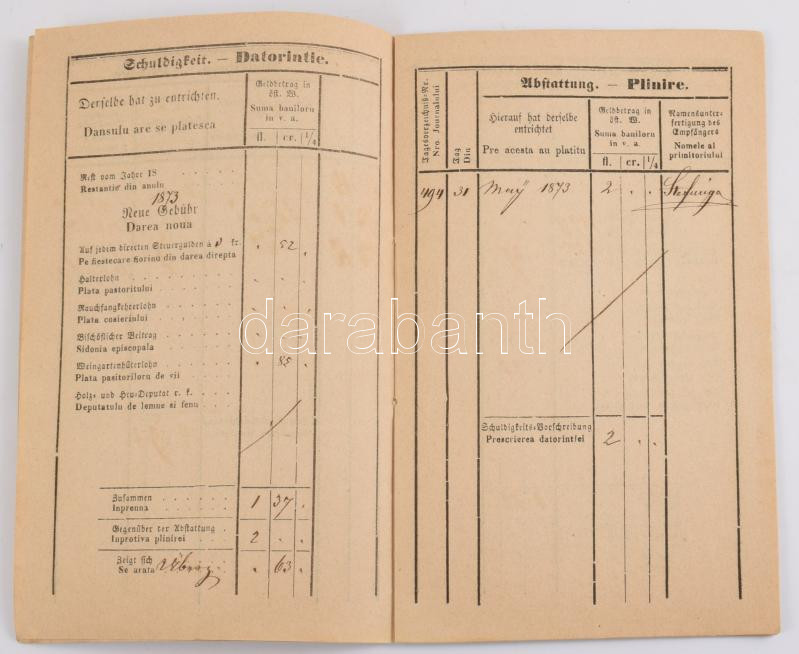 Schuldigkeit. — Datorintie.
Derselbe hat zu entrichten.
Dansulu are se platesca
Geldbetrag in
öst. W.
Suma baniloru
in v. a.
fl. cr. 1/4
Rest vom Jahre 18
Restantie din anulu
1873
Neue Gebühr
Darea noua
Auf jedem directen Steuergulden à kr.
Pe fiestecare fiorinu din darea direpta
. 52 .
Halterlohn
Plata pastoritului
Rauchfangkehrerlohn
Plata cosieriului
Bischöflicher Beitrag
Sidonia episcopala
Weingartenhüterlohn
Plata pasitoriloru de vii
. 85 .
Holz- und Heu-Deputat r. k.
Deputatulu de lemne si fenu
Zusammen
Inpreuna
1 37 .
Gegenüber der Abstattung
Inprotiva plinirei
2 . .
Zeigt sich
Se arata
. 63 .
Abstattung. — Plinire.
Tagesverzeichniß-Nr.
Nro. Journalului
Tag
Diu
Hierauf hat derselbe
entrichtet
Pre acesta au platitu
Geldbetrag in
öst. W.
Suma baniloru
in v. a.
fl. cr. 1/4
Namensunter-
fertigung des
Empfängers
Nomele al
primitoriului
494 31 May 1873 2 . .
Schuldigkeits-Vorschreibung
Prescrierea datorintiei
2 . .
darabanth